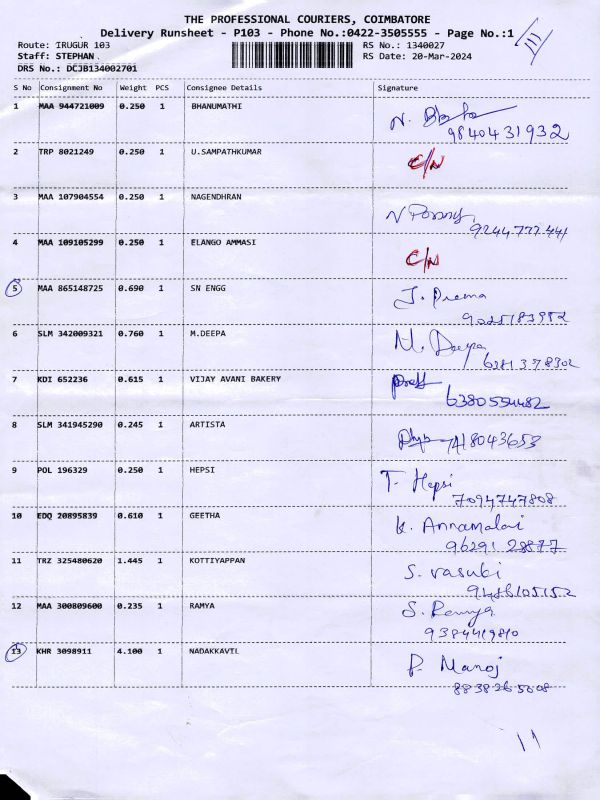 THE PROFESSIONAL COURIERS, COIMBATORE
Delivery Runsheet - P103 - Phone No.:0422-3505555 - Page No.:1
Route: IRUGUR 103 RS No.: 1340027
Staff: STEPHAN RS Date: 20-Mar-2024
DRS No.: DCJB134002701
S No Consignment No Weight PCS Consignee Details Signature
1 MAA 944721009 0.250 1 BHANUMATHI N.
9840431932
2 TRP 8021249 0.250 1 U.SAMPATHKUMAR C/N
3 MAA 107904554 0.250 1 NAGENDHRAN
9244777441
4 MAA 109105299 0.250 1 ELANGO AMMASI C/N
5 MAA 865148725 0.690 1 SN ENGG J. Prema
9025183982
6 SLM 342009321 0.760 1 M.DEEPA M. Deepa
6281378302
7 KDI 652236 0.615 1 VIJAY AVANI BAKERY
6380554482
8 SLM 341945290 0.245 1 ARTISTA
9 POL 196329 0.250 1 HEPSI T. Hepsi
7094747808
10 EDQ 20895839 0.610 1 GEETHA K. Annamalai
96291 28877
11 TRZ 325480620 1.445 1 KOTTIYAPPAN S. Vasuki
9486105152
12 MAA 300809600 0.235 1 RAMYA S. Ramya
9384419810
13 KHR 3098911 4.100 1 NADAKKAVIL P. Manoj
8838265008
11